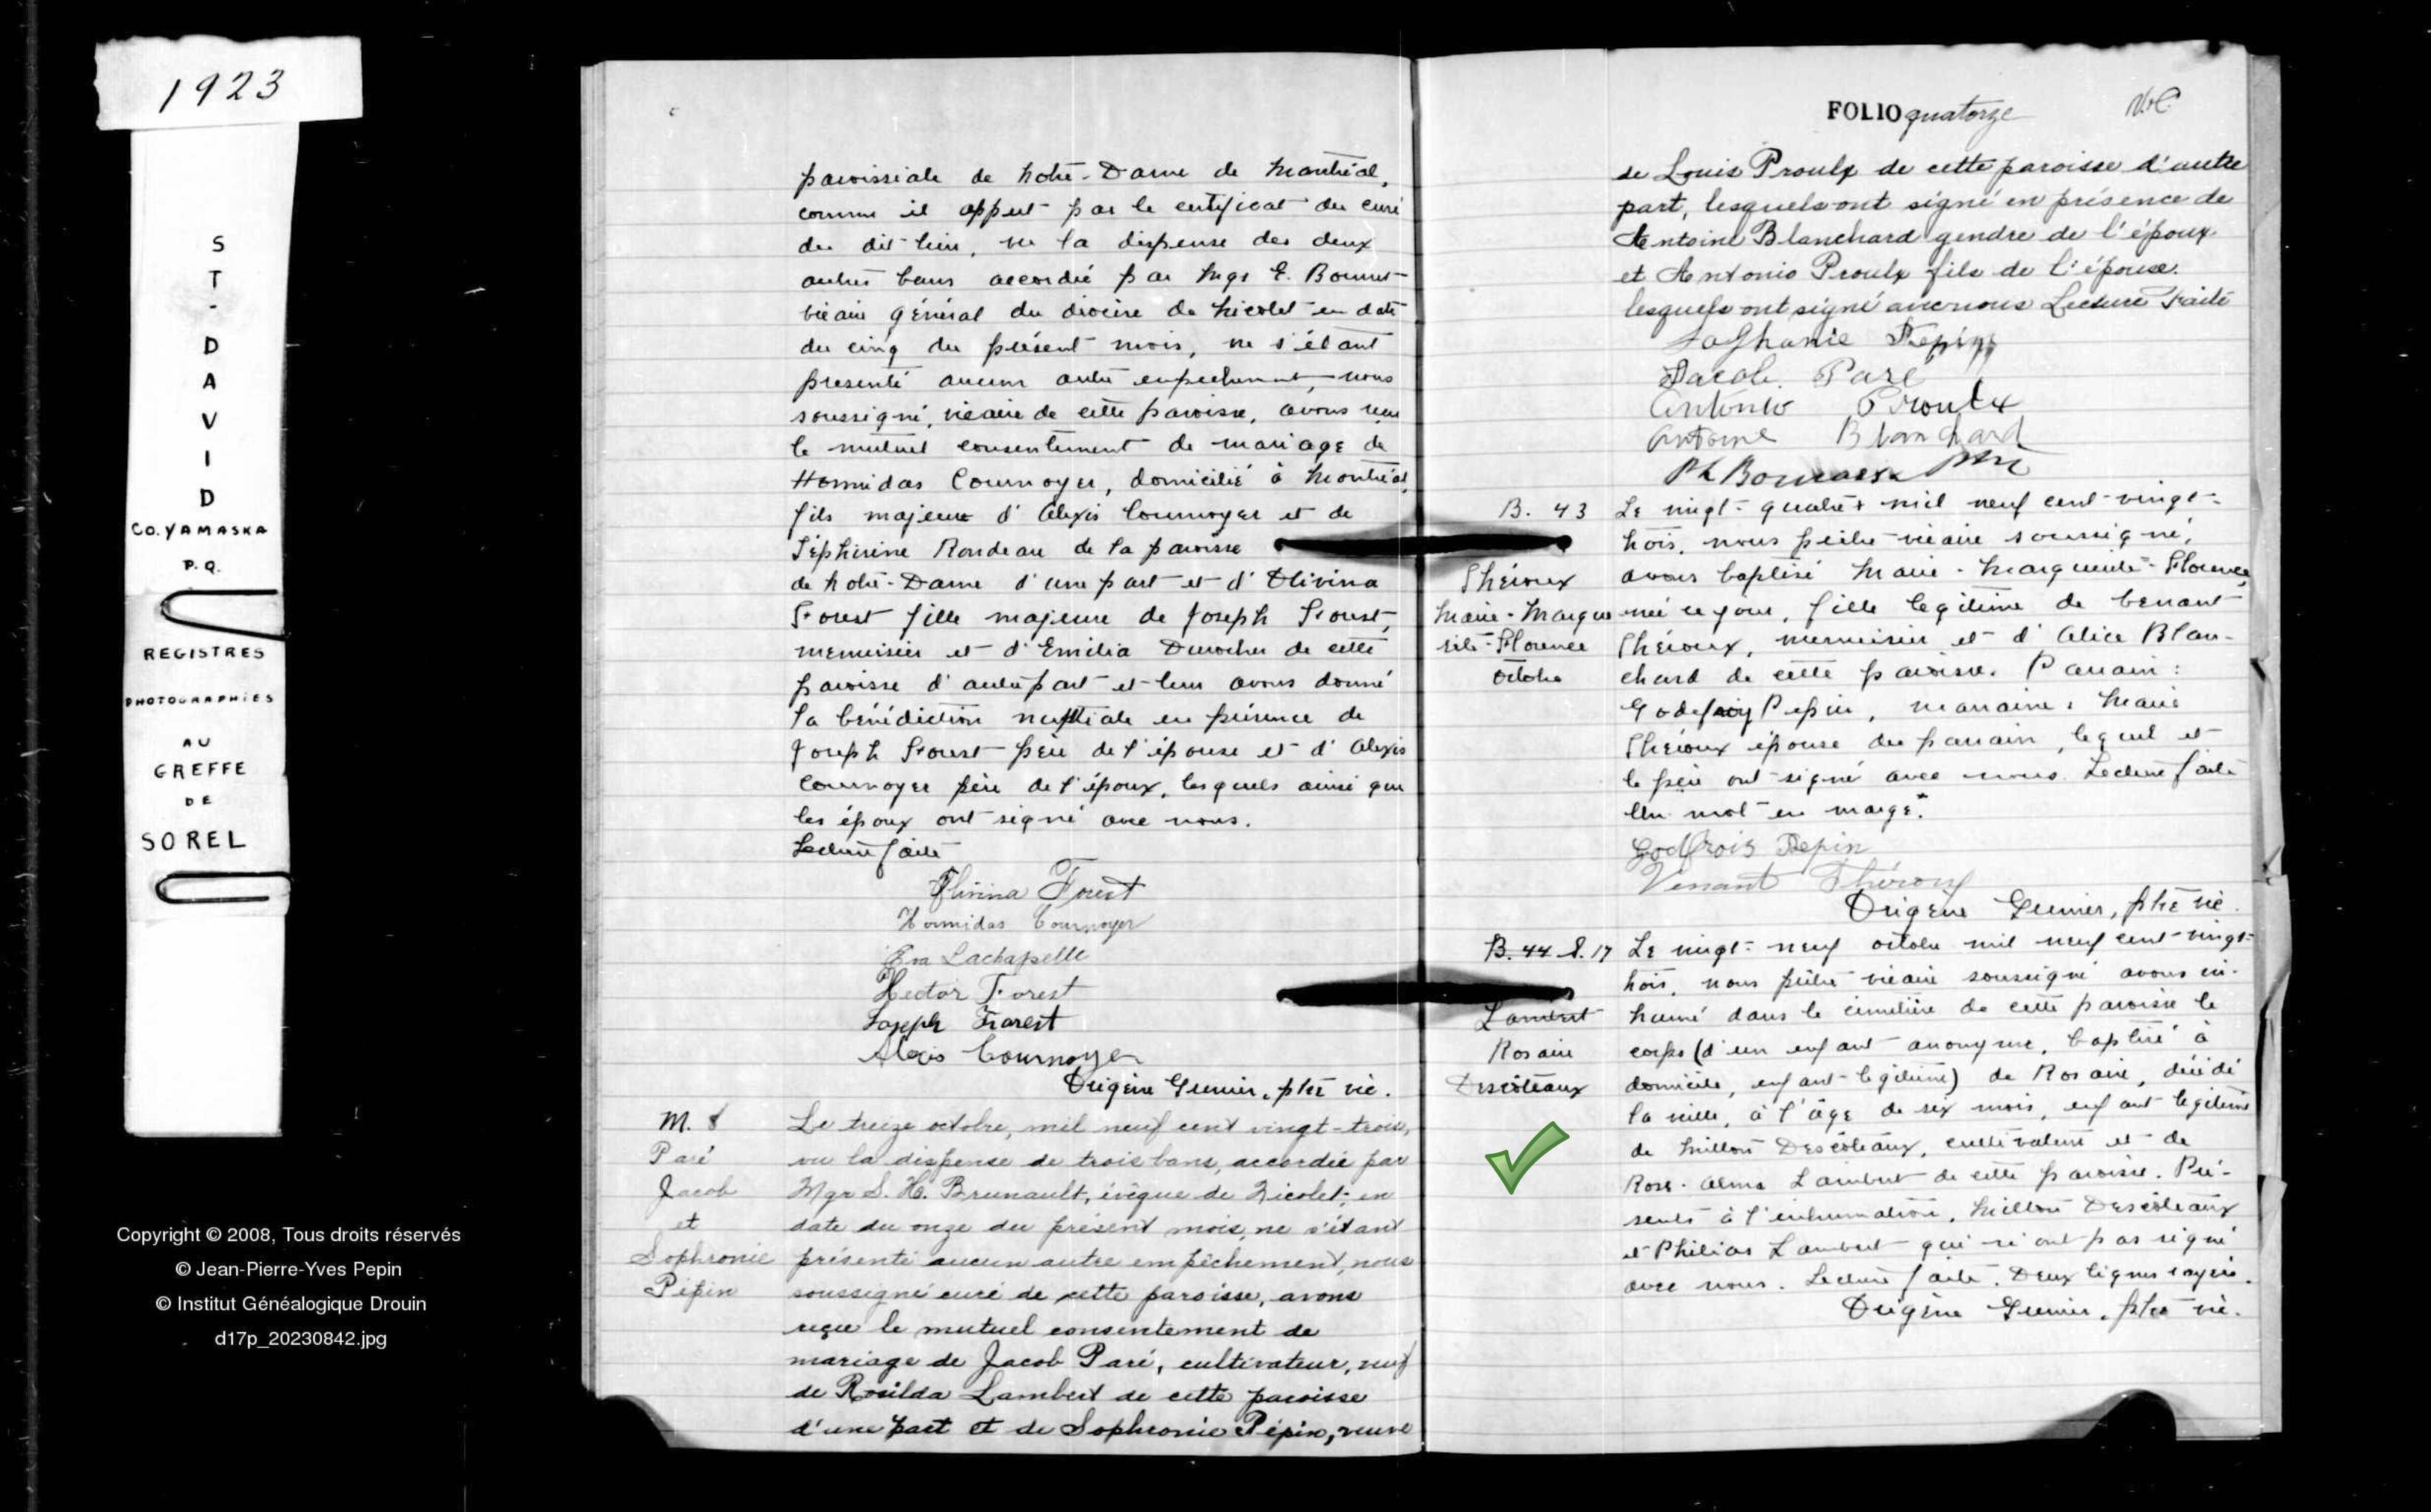 1923
S
T
-
D
A
V
I
D
CO. YAMASKA
P.Q.
REGISTRES
PHOTOGRAPHIES
AU
GREFFE
DE
SOREL
Copyright © 2008, Tous droits réservés
© Jean-Pierre-Yves Pepin
© Institut Généalogique Drouin
d17p_20230842.jpg
paroissiale de Notre-Dame de Montréal,
comme il appert par le certificat du curé
du dit lieu, vu la dispense des deux
autres bans accordée par Mgr E.
vicaire général du diocèse de Nicolet en date
du cinq du présent mois, ne s'étant
présenté aucun autre empêchement, nous
soussigné, vicaire de cette paroisse, avons reçu
le mutuel consentement de mariage de
Hormidas Cournoyer, domicilié à Montréal,
fils majeur d'Alexis Cournoyer et de
Séphirine Rondeau de la paroisse
de Notre-Dame d'une part et d'Olivina
Forest fille majeure de Joseph Forest,
menuisier et d'Emilia Durocher de cette
paroisse d'autre part et leur avons donné
la bénédiction nuptiale en présence de
Joseph Forest père de l'épouse et d'Alexis
Cournoyer père de l'époux, lesquels ainsi que
les époux ont signé avec nous.
Lecture faite
Olivina Forest
Hormidas Cournoyer
Eva Lachapelle
Hector Forest
Joseph Forest
Alexis Cournoyer
Origène Grenier, ptre vic.
M. 8
Paré
Jacob
et
Sophronie
Pépin
Le treize octobre, mil neuf cent vingt-trois,
vu la dispense de trois bans, accordée par
Mgr S. H. Brunault, évêque de Nicolet, en
date du onze du présent mois, ne s'étant
présenté aucun autre empêchement, nous
soussigné curé de cette paroisse, avons
reçu le mutuel consentement de
mariage de Jacob Paré, cultivateur, veuf
de Rosilda Lambert de cette paroisse
d'une part et de Sophronie Pépin, veuve
FOLIO quatorze
de Louis Proulx de cette paroisse d'autre
part, lesquels ont signé en présence de
Antoine Blanchard gendre de l'époux
et Antonio Proulx fils de l'épouse.
lesquels ont signé avec nous Lecture Faite
Pépin
Jacob Paré
Antonio Proulx
Antoine Blanchard
Ph Bourassa Ptre
B. 43
Théroux
Marie-Margue
rite-Florence
octobre
Le vingt-quatre + mil neuf cent vingt-
trois, nous prêtre vicaire soussigné,
avons baptisé Marie-Marguerite-Florence,
née ce jour, fille légitime de Venant
Théroux, menuisier et d'Alice Blan-
chard de cette paroisse. Parrain:
Godefroy Pepin, marraine: Marie
Théroux épouse du parrain, lequel et
le père ont signé avec nous. Lecture faite
Un mot en marge.
Godfrois Pepin
Venant Théroux
Origène Grenier, ptre vic.
B. 44 S. 17
Lambert
Rosaire
Descôteaux
Le vingt-neuf octobre mil neuf cent vingt-
trois, nous prêtre vicaire soussigné avons in-
humé dans le cimetière de cette paroisse le
corps (d'un enfant anonyme, baptisé à
domicile, enfant légitime) de Rosaire, décédé
la veille, à l'âge de six mois, enfant légitime
de Milton Descôteaux, cultivateur et de
Rose-Alma Lambert de cette paroisse. Pré-
sents à l'inhumation, Milton Descôteaux
et Philias Lambert qui n'ont pas signé
avec nous. Lecture faite. Deux lignes rayées.
Origène Grenier, ptre vic.